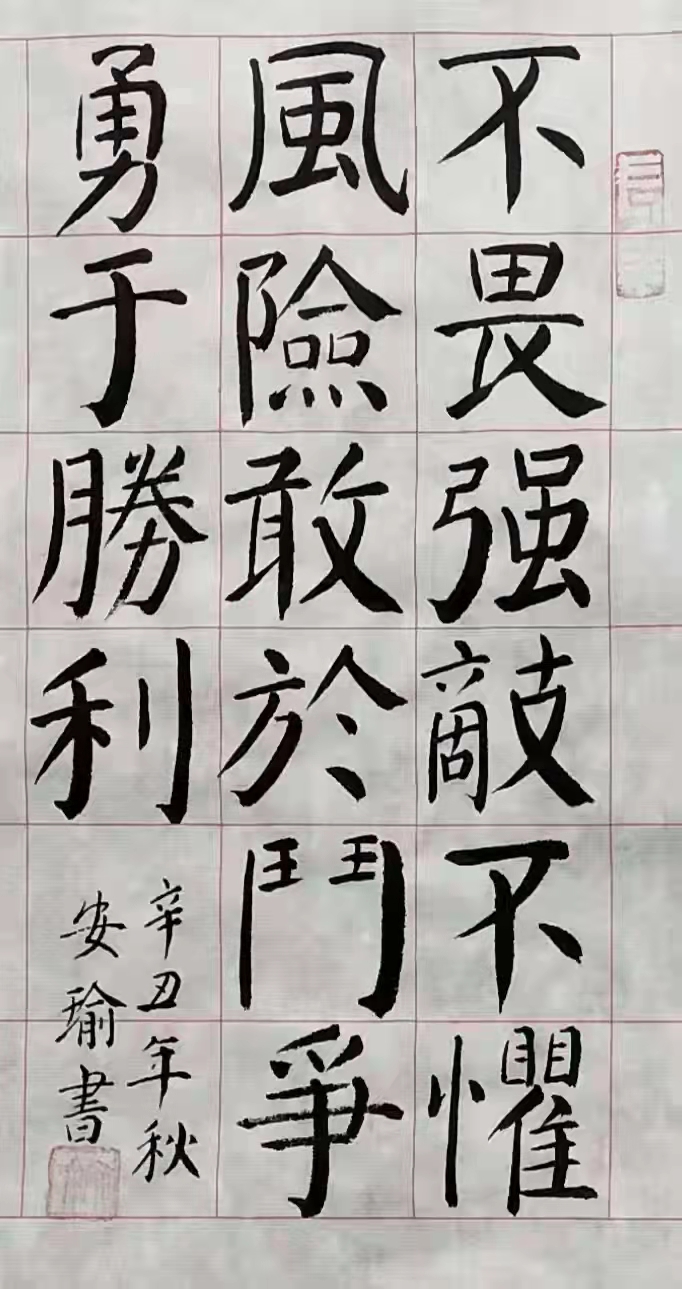 不畏强敵不懼
風險敢於鬥爭
勇于勝利
辛丑年秋
安瑜書